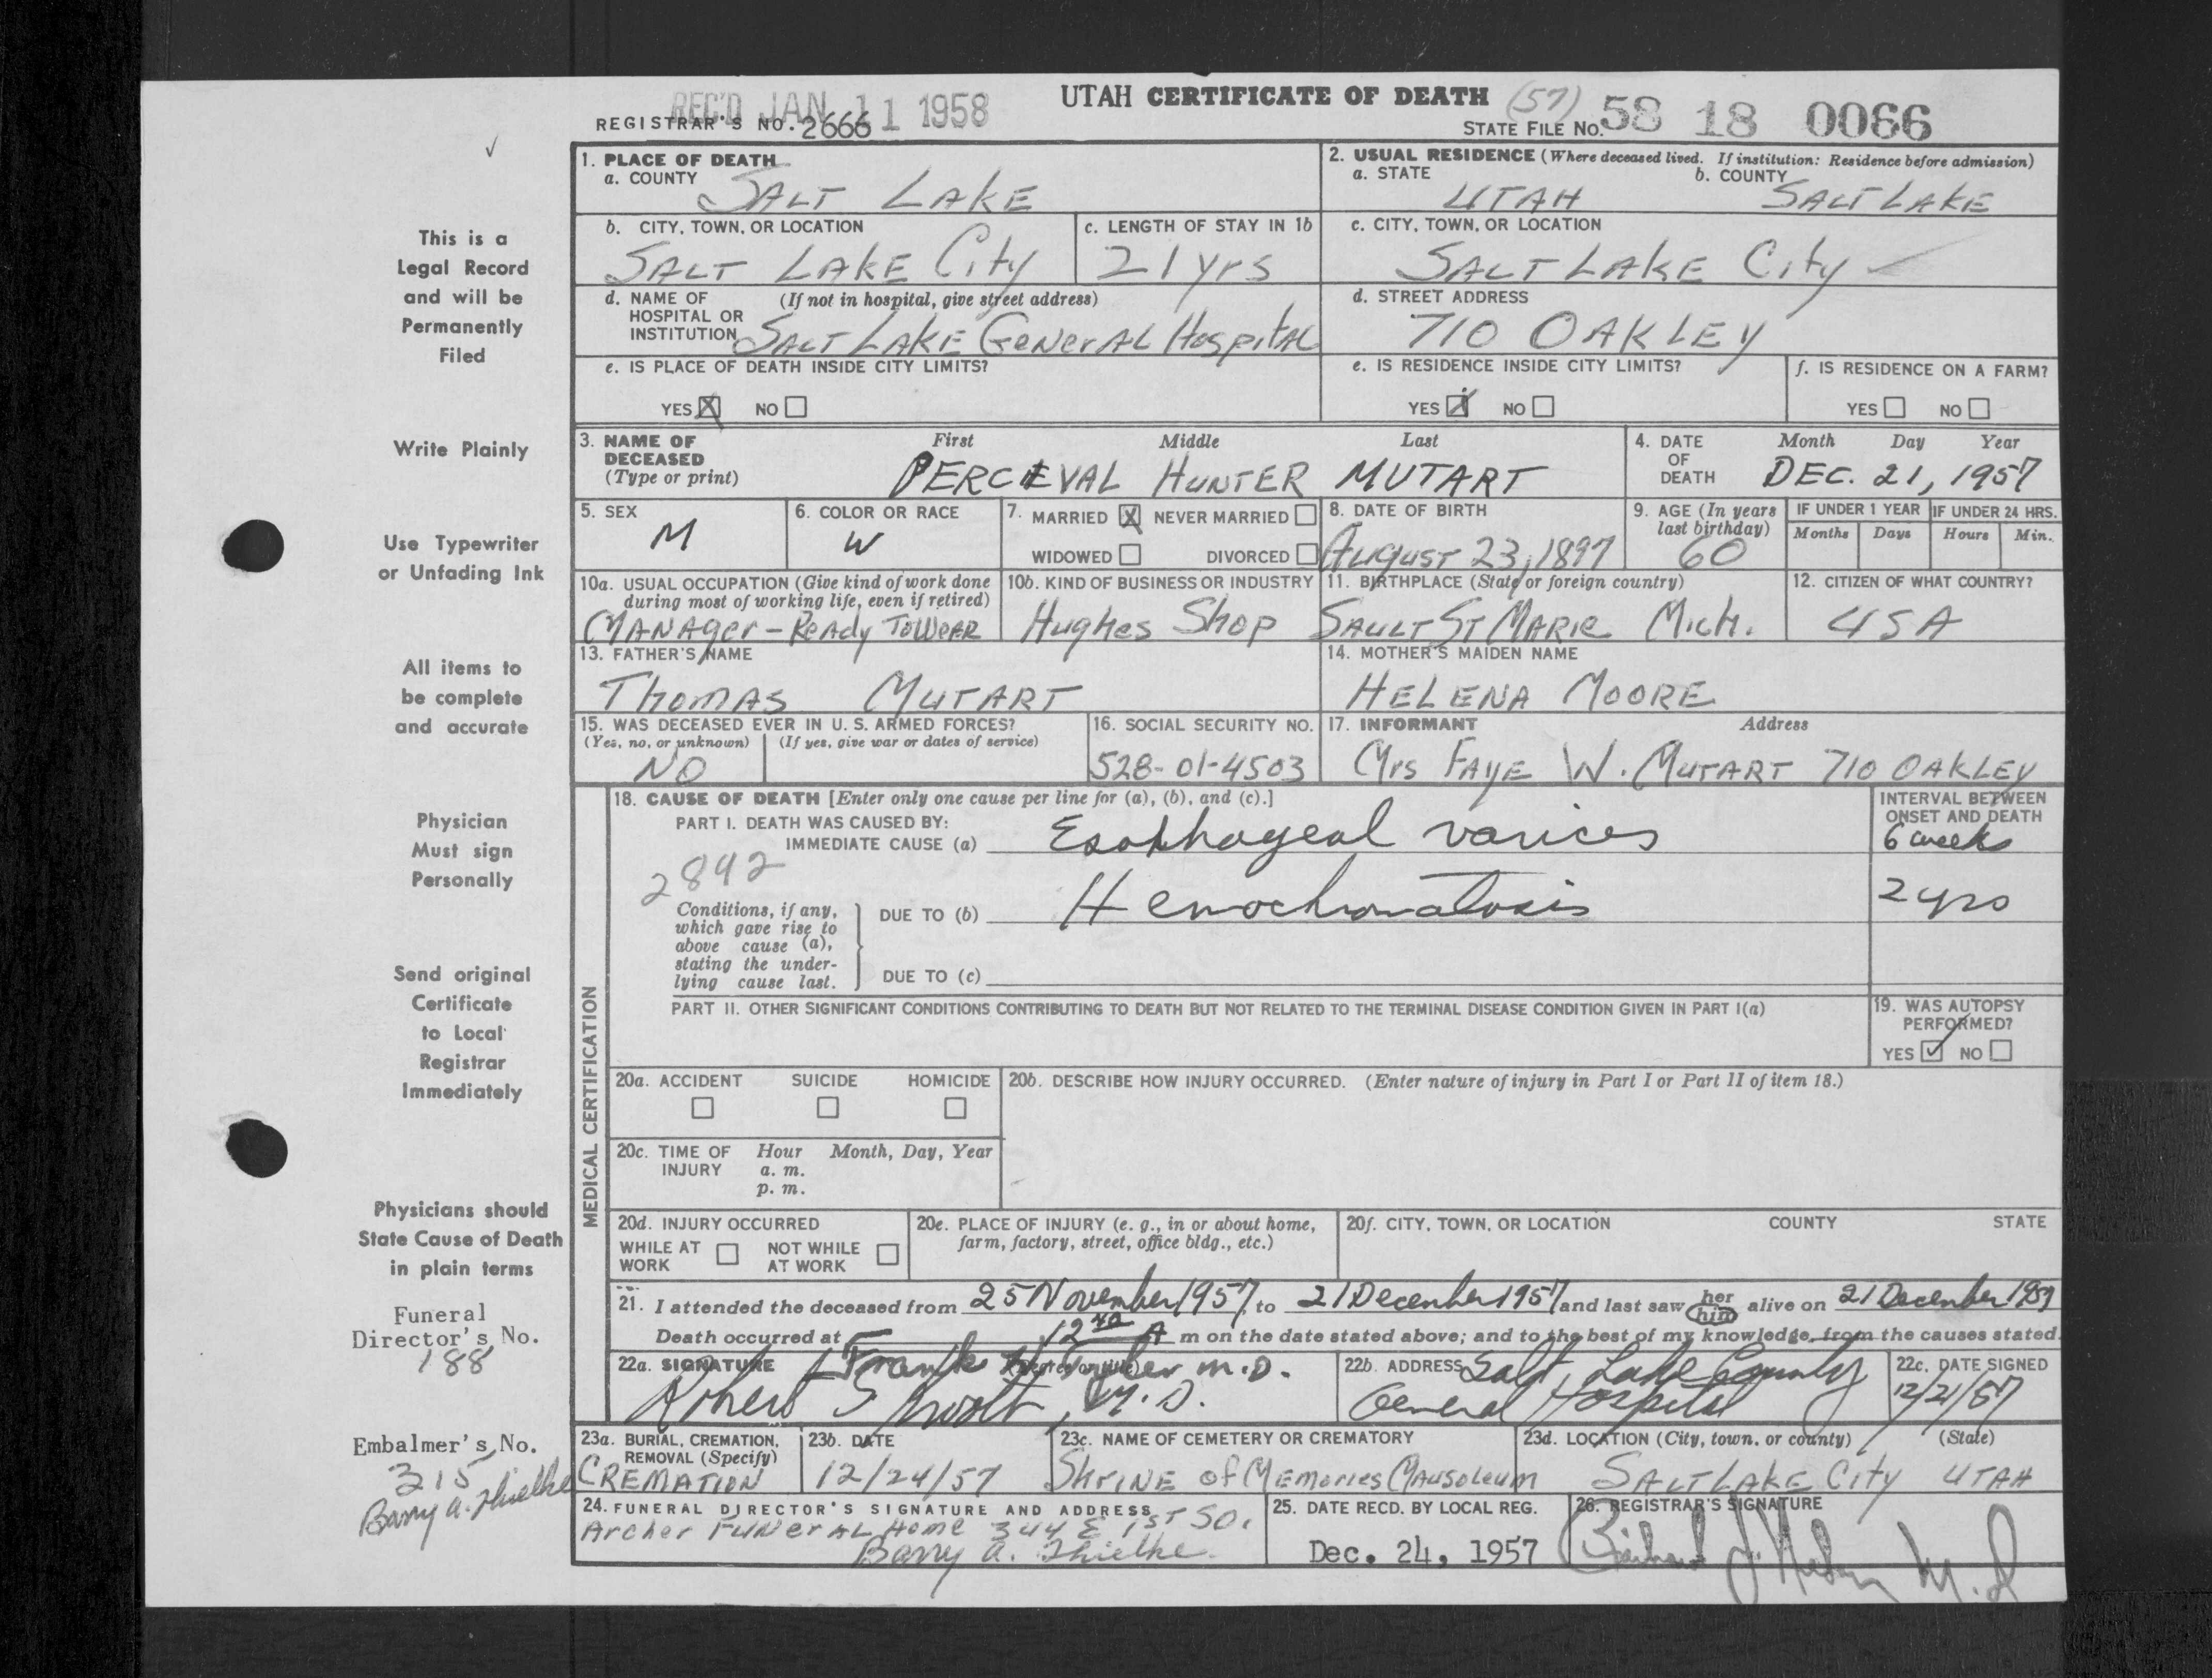 REC'D JAN 11 1958
UTAH CERTIFICATE OF DEATH (57)
REGISTRAR'S NO. 2666
STATE FILE NO. 58 18 0066
1. PLACE OF DEATH
a. COUNTY SALT LAKE
2. USUAL RESIDENCE (Where deceased lived. If institution: Residence before admission)
a. STATE UTAH b. COUNTY SALT LAKE
b. CITY, TOWN, OR LOCATION SALT LAKE City
c. LENGTH OF STAY IN 1b 21 yrs
c. CITY, TOWN, OR LOCATION SALT LAKE City
d. NAME OF HOSPITAL OR INSTITUTION (If not in hospital, give street address) SALT LAKE GENERAL HOSPITAL
d. STREET ADDRESS 710 OAKLEY
e. IS PLACE OF DEATH INSIDE CITY LIMITS?
YES X NO
e. IS RESIDENCE INSIDE CITY LIMITS?
YES X NO
f. IS RESIDENCE ON A FARM?
YES NO
3. NAME OF DECEASED (Type or print)
First Middle Last
PERCEVAL HUNTER MUTART
4. DATE OF DEATH Month Day Year
DEC. 21, 1957
5. SEX M
6. COLOR OR RACE W
7. MARRIED X NEVER MARRIED
WIDOWED DIVORCED
8. DATE OF BIRTH August 23, 1897
9. AGE (In years last birthday) 60
IF UNDER 1 YEAR Months Days
IF UNDER 24 HRS. Hours Min.
10a. USUAL OCCUPATION (Give kind of work done during most of working life, even if retired)
MANAger - ReAdy ToWeAR
10b. KIND OF BUSINESS OR INDUSTRY Hughes Shop
11. BIRTHPLACE (State or foreign country) SAULT ST MARIE Mich.
12. CITIZEN OF WHAT COUNTRY? USA
13. FATHER'S NAME THOMAS MUTART
14. MOTHER'S MAIDEN NAME HELENA MOORE
15. WAS DECEASED EVER IN U. S. ARMED FORCES?
(Yes, no, or unknown) (If yes, give war or dates of service)
NO
16. SOCIAL SECURITY NO. 528-01-4503
17. INFORMANT Address
Mrs FAYE W. MUTART 710 OAKLEY
MEDICAL CERTIFICATION
18. CAUSE OF DEATH [Enter only one cause per line for (a), (b), and (c).]
INTERVAL BETWEEN ONSET AND DEATH
PART I. DEATH WAS CAUSED BY:
IMMEDIATE CAUSE (a) Esophageal varices 6 weeks
2892
Conditions, if any, which gave rise to above cause (a), stating the underlying cause last.
DUE TO (b) Hemochromatosis 2 yrs
DUE TO (c)
PART II. OTHER SIGNIFICANT CONDITIONS CONTRIBUTING TO DEATH BUT NOT RELATED TO THE TERMINAL DISEASE CONDITION GIVEN IN PART I(a)
19. WAS AUTOPSY PERFORMED?
YES ✓ NO
20a. ACCIDENT SUICIDE HOMICIDE
20b. DESCRIBE HOW INJURY OCCURRED. (Enter nature of injury in Part I or Part II of item 18.)
20c. TIME OF INJURY Hour Month, Day, Year
a. m.
p. m.
20d. INJURY OCCURRED
WHILE AT WORK NOT WHILE AT WORK
20e. PLACE OF INJURY (e. g., in or about home, farm, factory, street, office bldg., etc.)
20f. CITY, TOWN, OR LOCATION COUNTY STATE
21. I attended the deceased from 25 November 1957, to 21 December 1957 and last saw her him alive on 21 December 1957
Death occurred at A m on the date stated above; and to the best of my knowledge, from the causes stated.
22a. SIGNATURE Frank H. Tyler M.D.
Robert S M.D.
22b. ADDRESS Salt Lake County General Hospital
22c. DATE SIGNED 12/21/57
23a. BURIAL, CREMATION, REMOVAL (Specify) CREMATION
23b. DATE 12/24/57
23c. NAME OF CEMETERY OR CREMATORY Shrine of Memories Mausoleum
23d. LOCATION (City, town, or county) (State)
SALT LAKE City UTAH
24. FUNERAL DIRECTOR'S SIGNATURE AND ADDRESS
Archer FUNerAL Home 344 E 1ST SO.
Barry A. Thielke
25. DATE RECD. BY LOCAL REG.
Dec. 24, 1957
26. REGISTRAR'S SIGNATURE
M.D
This is a
Legal Record
and will be
Permanently
Filed
Write Plainly
Use Typewriter
or Unfading Ink
All items to
be complete
and accurate
Physician
Must sign
Personally
Send original
Certificate
to Local
Registrar
Immediately
Physicians should
State Cause of Death
in plain terms
Funeral
Director's No.
188
Embalmer's No.
315
Barry A. Thielke